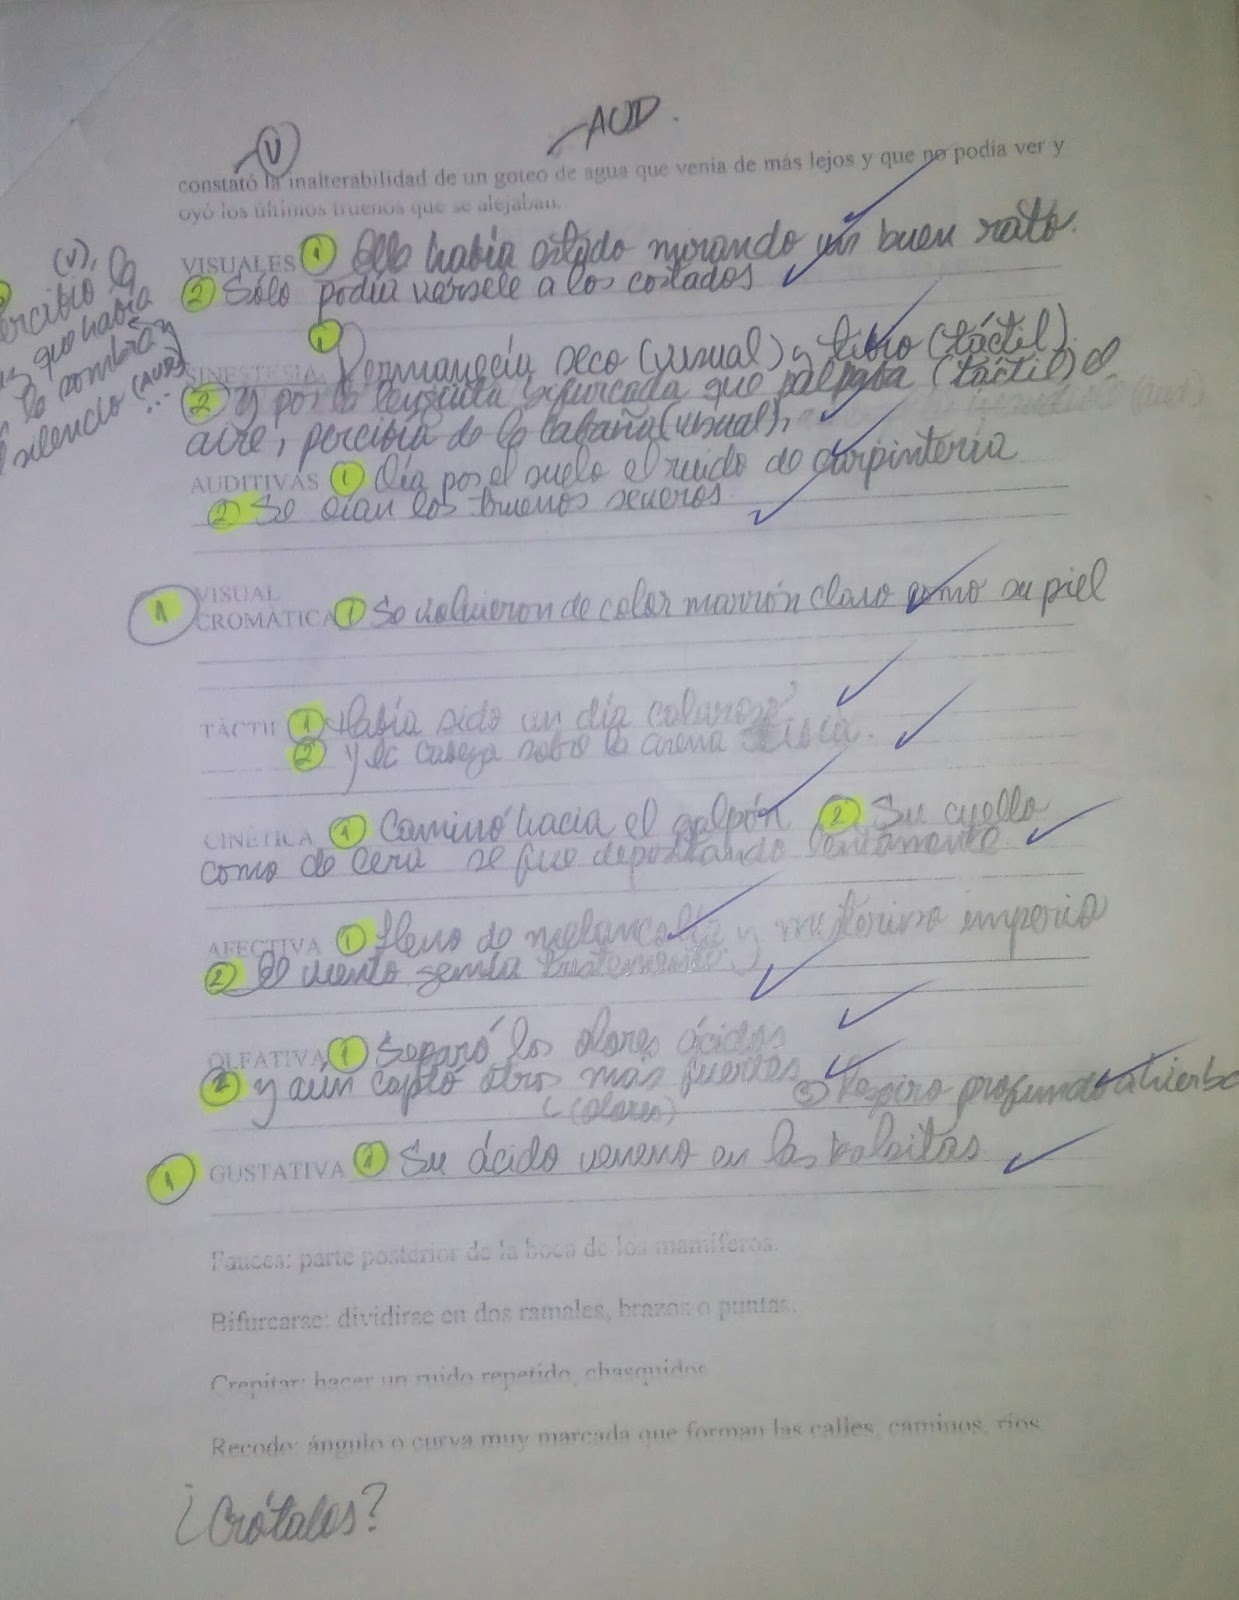 V
AUD.
constató la inalterabilidad de un goteo de agua que venía de más lejos y que no podía ver y
oyó los últimos truenos que se alejaban.
VISUALES 1 Ella había estado mirando un buen rato.
2 Sólo podía vérsele a los costados
(V), la
que había
la sombra y
silencio (AUD)
...
1 Permanecía seco (visual) y tibio (táctil)
SINESTESIA
2 y por la lengüita bifurcada que palpaba (táctil) el
aire, percibía de la cabaña (visual),
AUDITIVAS 1 Oía por el suelo el ruido de carpintería
2 Se oían los truenos severos
1 VISUAL
CROMÁTICA 1 Se volvieron de color marrón claro como su piel
TÁCTIL 1 Había sido un día caluroso
2 y la cabeza sobre la arena tibia.
CINÉTICA 1 Caminó hacia el galpón 2 Su cuello
como de cera se fue despertando lentamente
AFECTIVA 1 lleno de melancolía y misterioso imperio
2 El viento gemía tristemente
OLFATIVA 1 Separó los olores ácidos
2 y aún captó otros más fuertes 3 Respiró profundo a hierba
(olores)
1 GUSTATIVA 1 Su ácido veneno en las bolsitas
Fauces: parte posterior de la boca de los mamíferos.
Bifurcarse: dividirse en dos ramales, brazos o puntas.
Crepitar: hacer un ruido repetido, chasquidos
Recodo: ángulo o curva muy marcada que forman las calles, caminos, ríos
¿Crótalos?